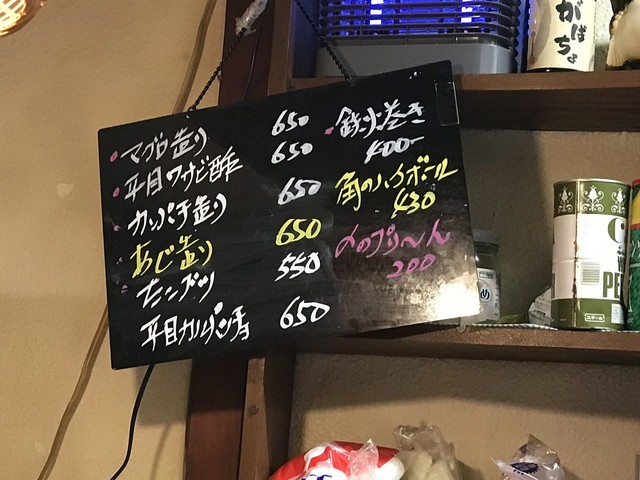 マグロ造り 650
平目ワサビ酢 650
カンパチ造り 650
あじ造り 650
たこブツ 550
平目カルパッチョ 650
鉄火巻き
400-
角のハイボール
430
〆のプリ〜ん
200
がばちょ
スチール